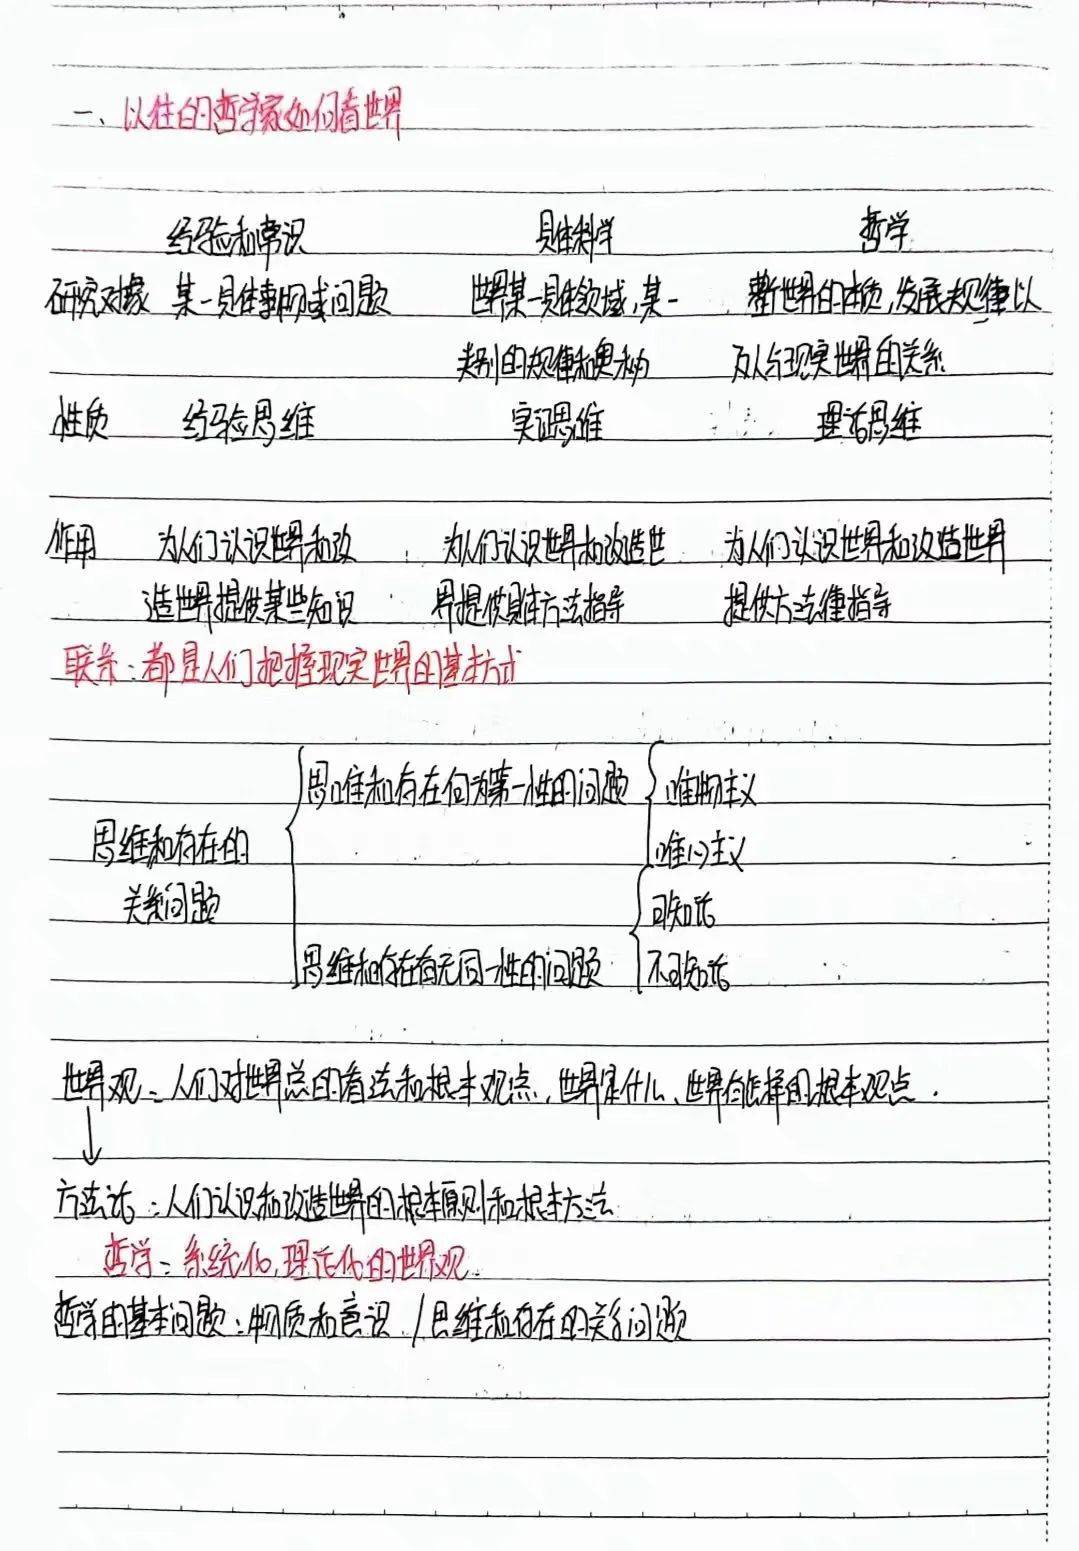 一、以往的哲学家如何看世界
经验和常识 具体科学 哲学
研究对象 某一具体事物或问题 世界某一具体领域,某一 整世界的本质,发展规律以
类别的规律和奥秘 及人与现实世界的关系
性质 经验思维 实证思维 理论思维
作用 为人们认识世界和改 为人们认识世界和改造世 为人们认识世界和改造世界
造世界提供某些知识 界提供具体方法指导 提供方法律指导
联系:都是人们把握现实世界的基本方式
思维和存在何为第一性的问题 唯物主义
思维和存在的 唯心主义
关系问题 可知论
思维和存在有无同一性的问题 不可知论
世界观:人们对世界总的看法和根本观点,世界是什么、世界有怎样的根本观点.
↓
方法论:人们认识和改造世界的根本原则和根本方法
哲学:系统化,理论化的世界观
哲学的基本问题:物质和意识/思维和存在的关系问题